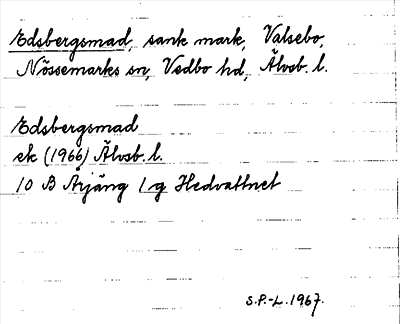 Edsbergsmad, sank mark, Valsebo,
Nössemarks sn, Vedbo hd, Älvsb. l.
Edsbergsmad
ek (1966) Älvsb. l.
10 B Årjäng 1 g Hedvattnet
S.P.-L. 1967.